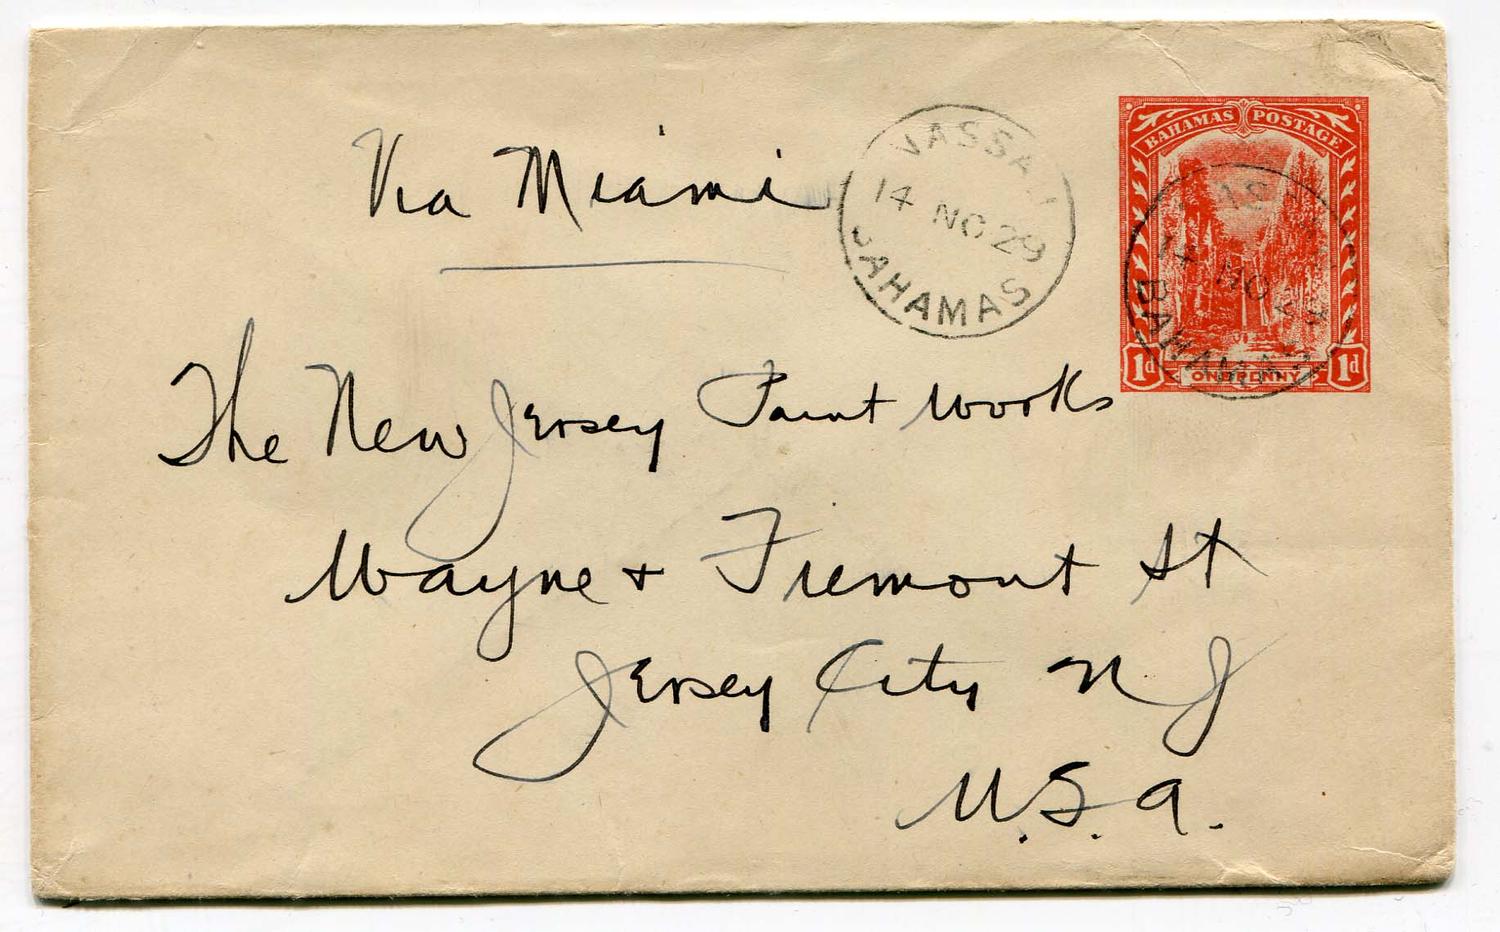 Via Miami
NASSAU
14 NO 29
BAHAMAS
BAHAMAS POSTAGE
14 NO 29
BAHAMAS
1d ONE PENNY 1d
The New Jersey Paint Works
Wayne + Fremont St
Jersey City N J
U.S.A.